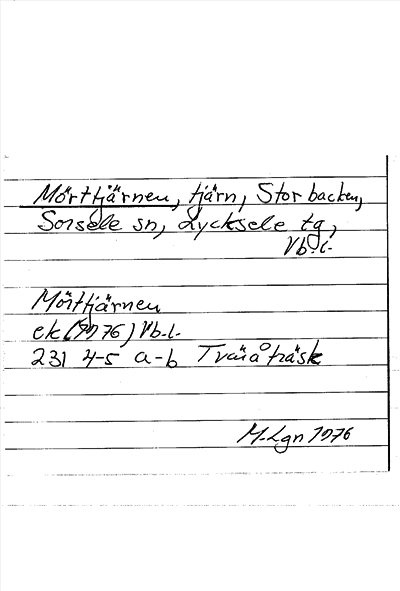 Mörttjärnen, tjärn, Storbacken,
Sorsele sn, Lycksele tg,
Vb.l.
Mörttjärnen
ek (1976) Vb.l.
231 4-5 a-b Tväråträsk
M. Lgn 1976